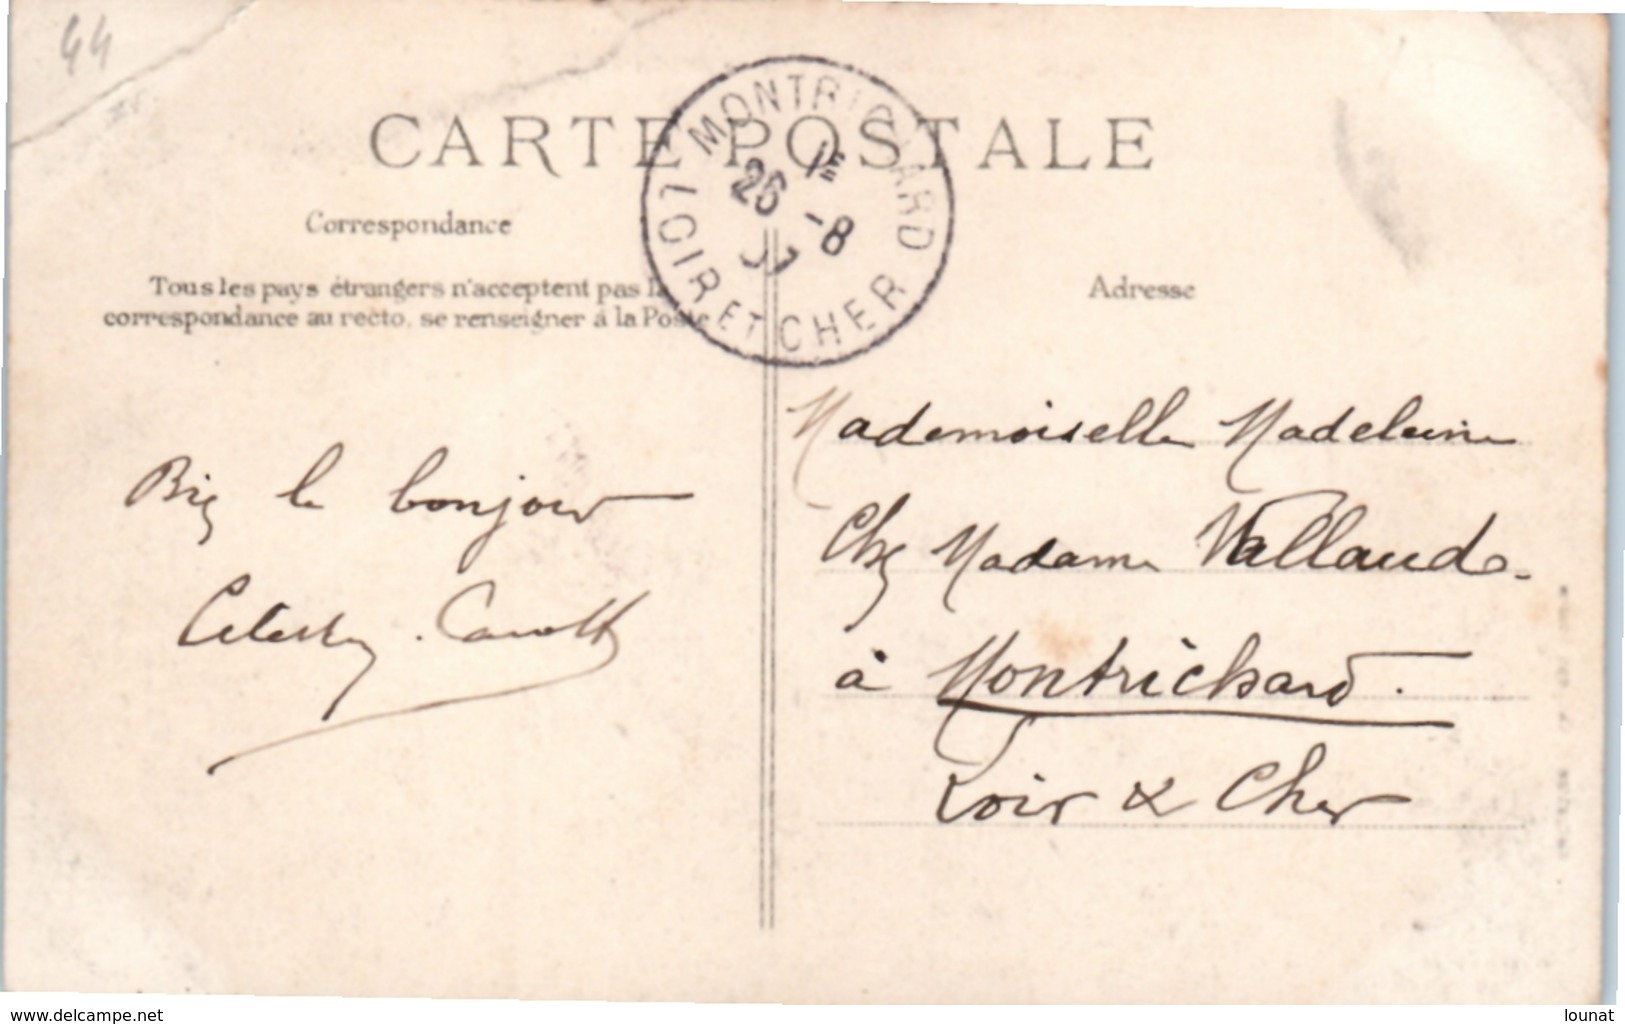 44
CARTE POSTALE
MONTRICHARD
1E
26 -8
07
LOIR ET CHER
Correspondance
Tous les pays étrangers n'acceptent pas la
correspondance au recto, se renseigner à la Poste
Adresse
Bien le bonjour
Mademoiselle Madeleine
Chez Madame Vallaude
à Montrichard.
Loir & Cher
www.delcampe.net
lounat